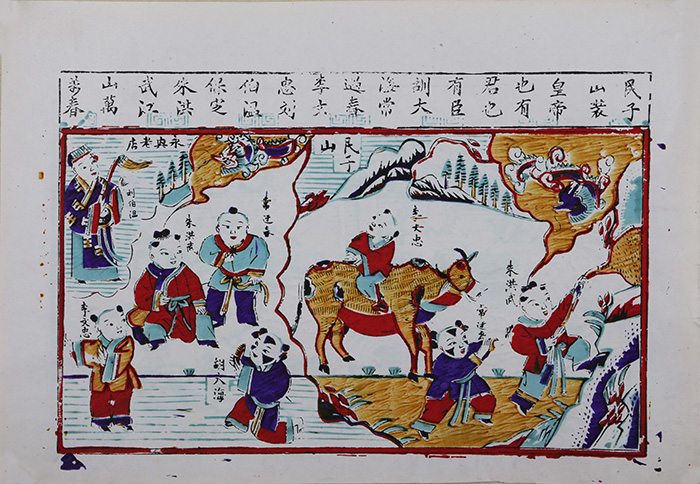 民子
山裝
皇帝
也有
君也
有臣
訓大
海常
遇春
李文
忠刘
伯温
保定
朱洪
武江
山萬
春
民子
山
李文忠
朱洪武
常遇春
永興老店
常遇春
朱洪武
刘伯温
訓大海
李文忠